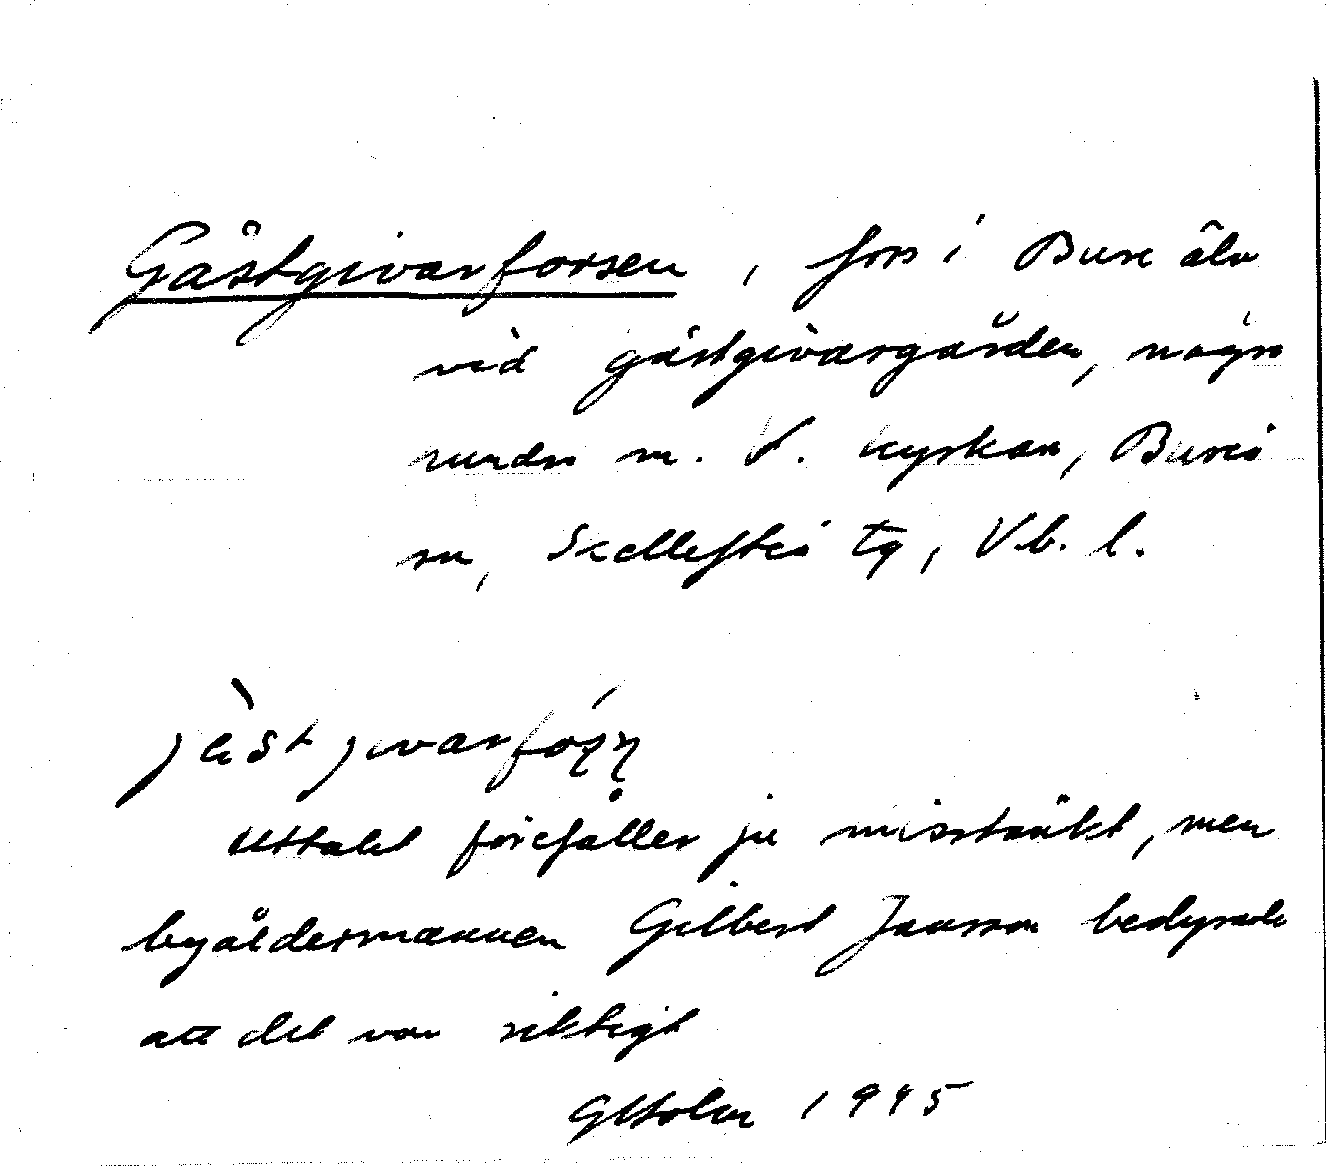 Gästgivarforsen, fors i Bure älv
vid gästgivargården, några
hundra m. V. kyrkan, Bureå
sn, Skellefteå tg, Vb. l.
Uttalet förefaller ju misstänkt, men
byåldermannen Gilbert Jansson bedyrade
att det var riktigt
GHolm 1945